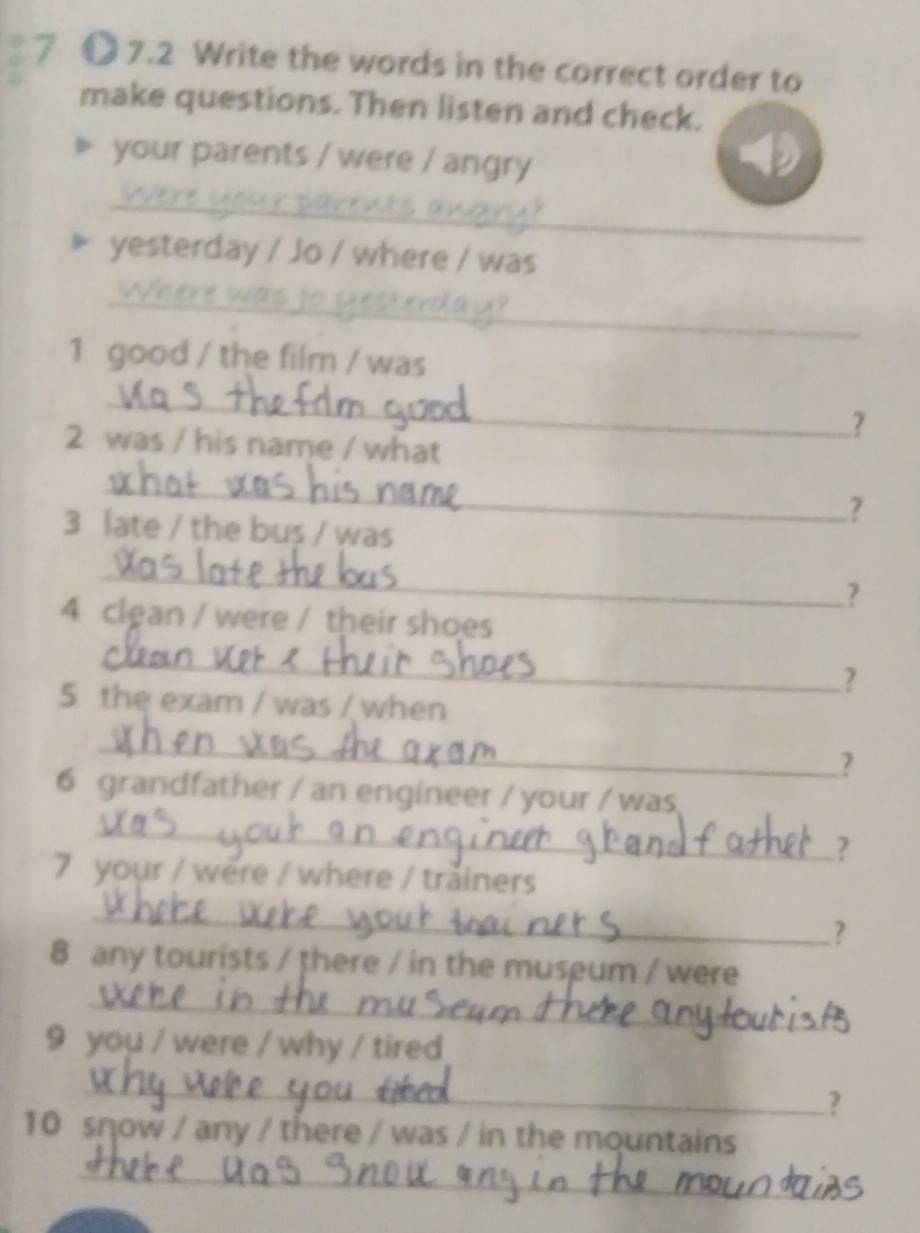 7 7.2 Write the words in the correct order to
make questions. Then listen and check.
your parents / were / angry
Were your parents angry?
yesterday / Jo / where / was
Where was Jo yesterday?
1 good / the film / was
was the film good ?
2 was / his name / what
what was his name ?
3 late / the bus / was
was late the bus ?
4 clean / were / their shoes
clean were their shoes ?
5 the exam / was / when
when was the axam ?
6 grandfather / an engineer / your / was
was your an engineer grandfather ?
7 your / were / where / trainers
where were your trainers ?
8 any tourists / there / in the museum / were
were in the museum there any tourists
9 you / were / why / tired
why were you tired ?
10 snow / any / there / was / in the mountains
there was snow any in the mountains